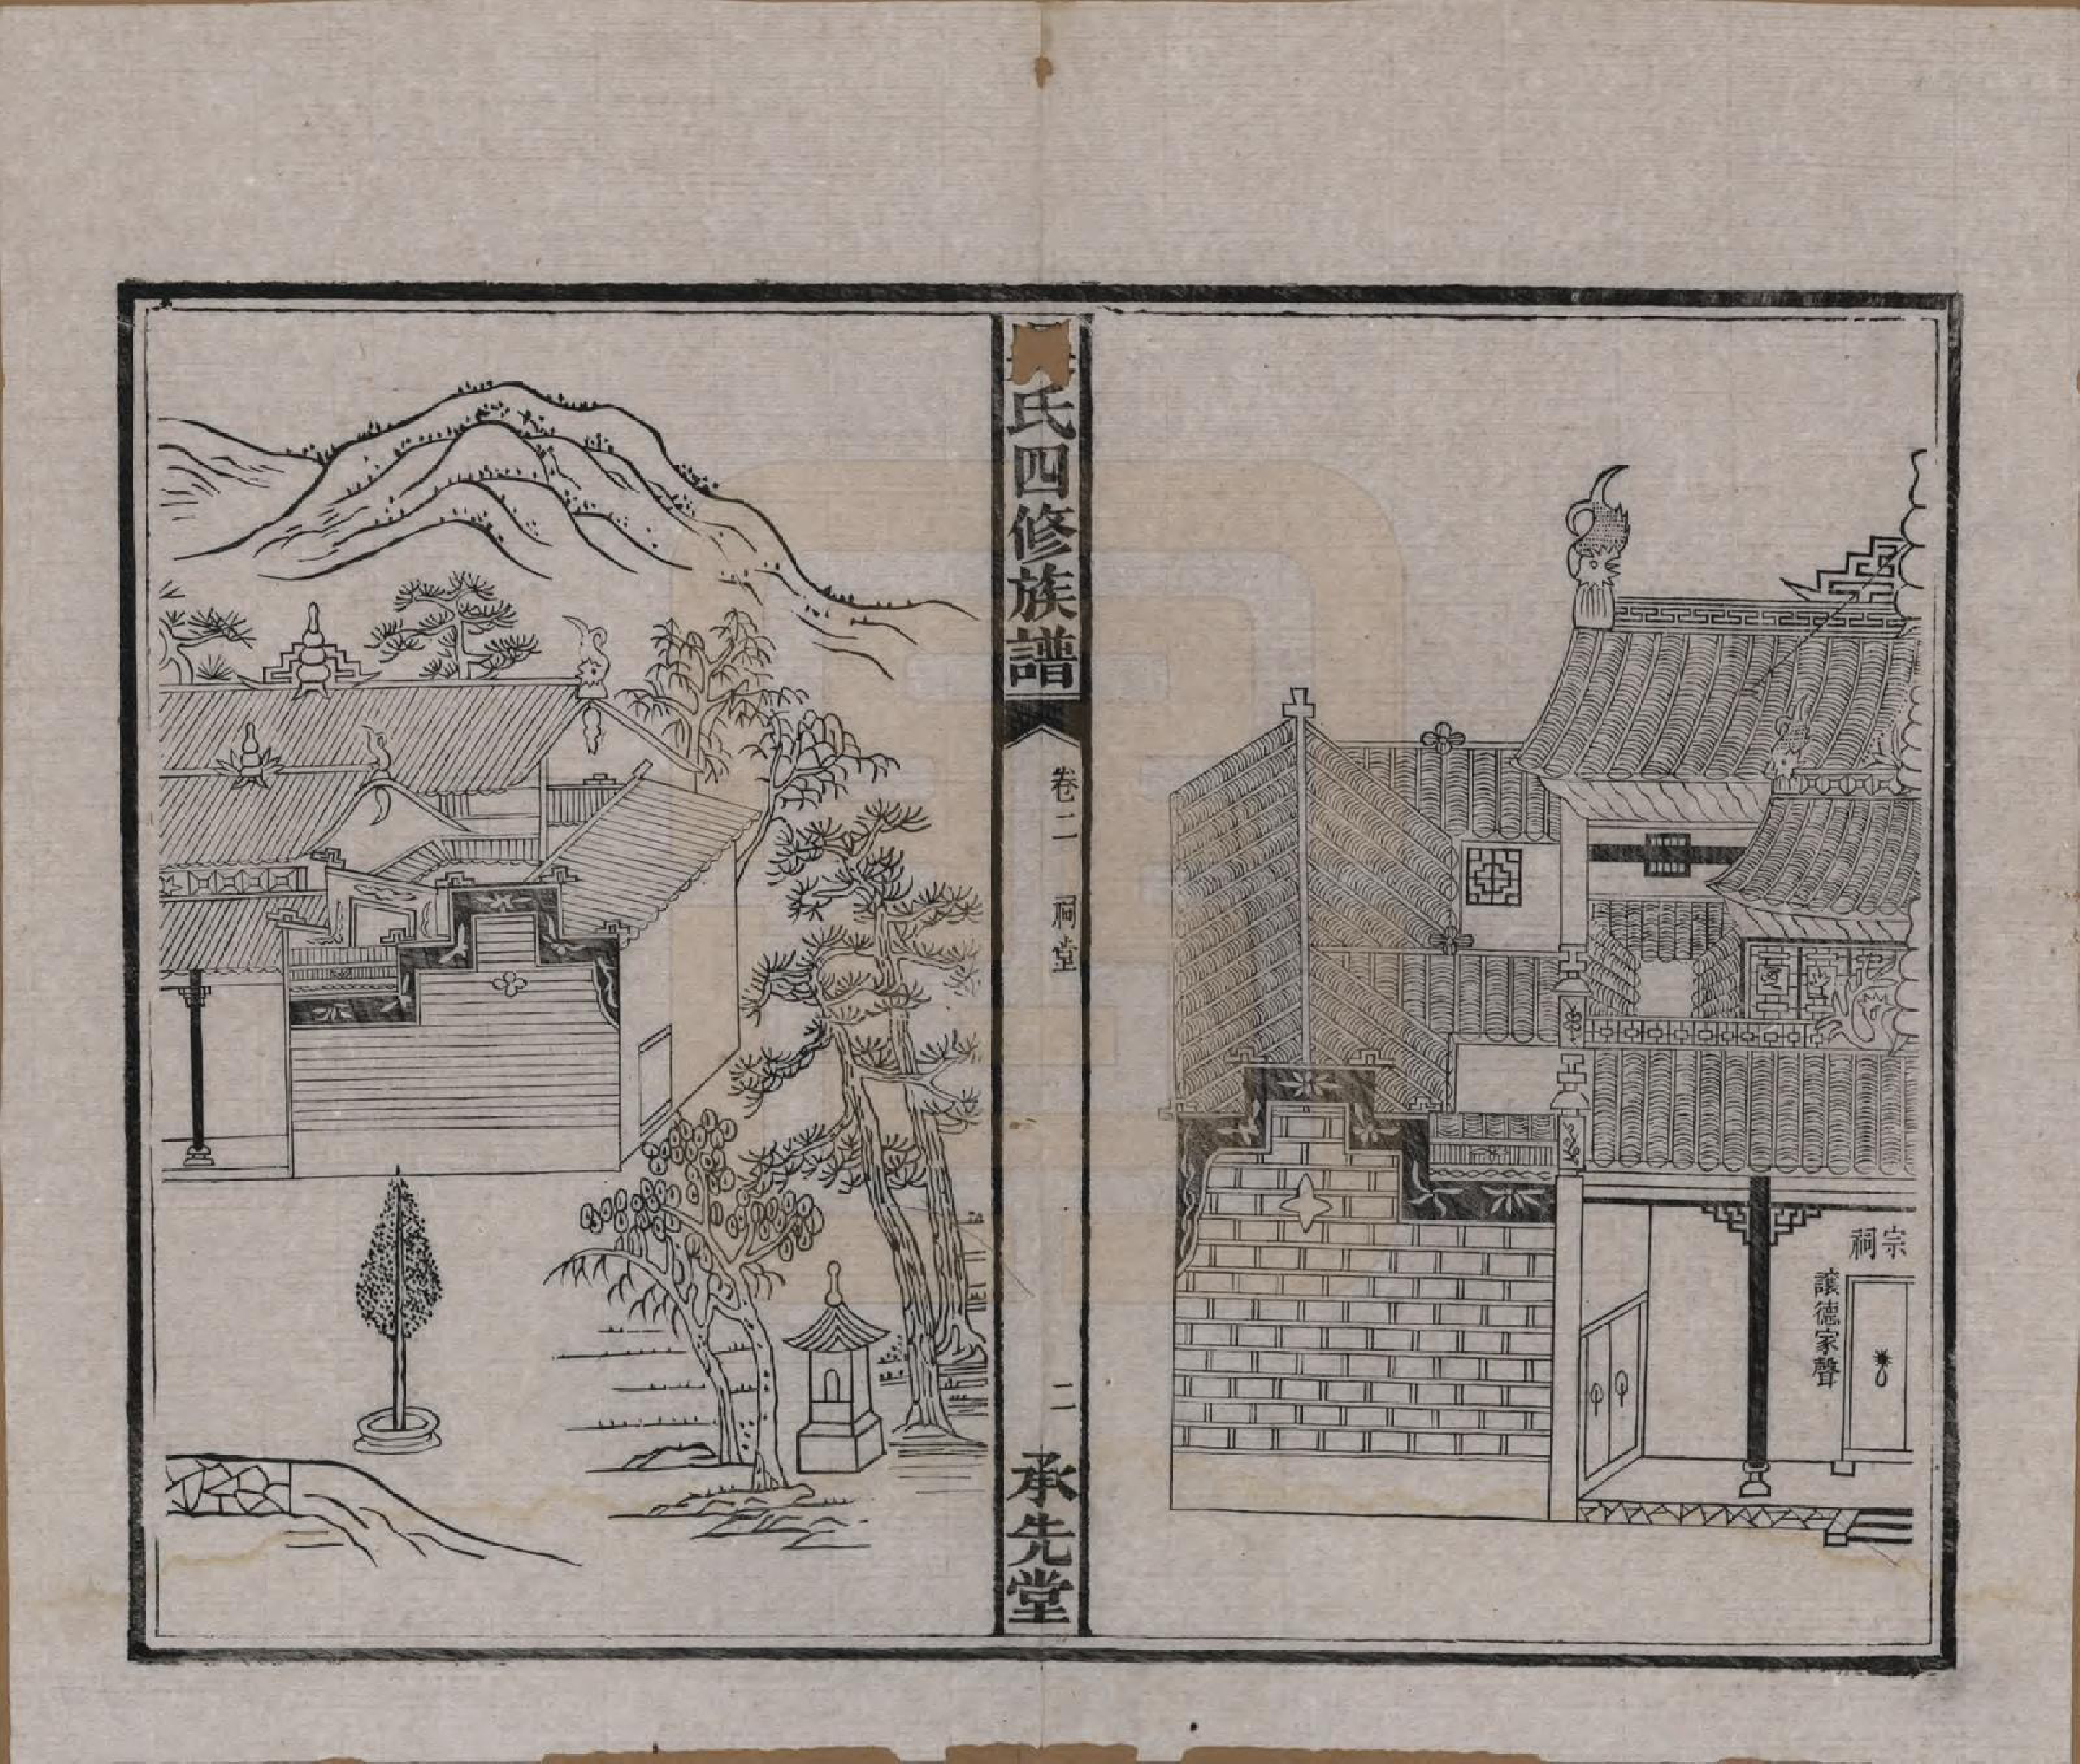 宗祠
讓德家聲
氏四修族譜
卷二
祠堂
二
承先堂